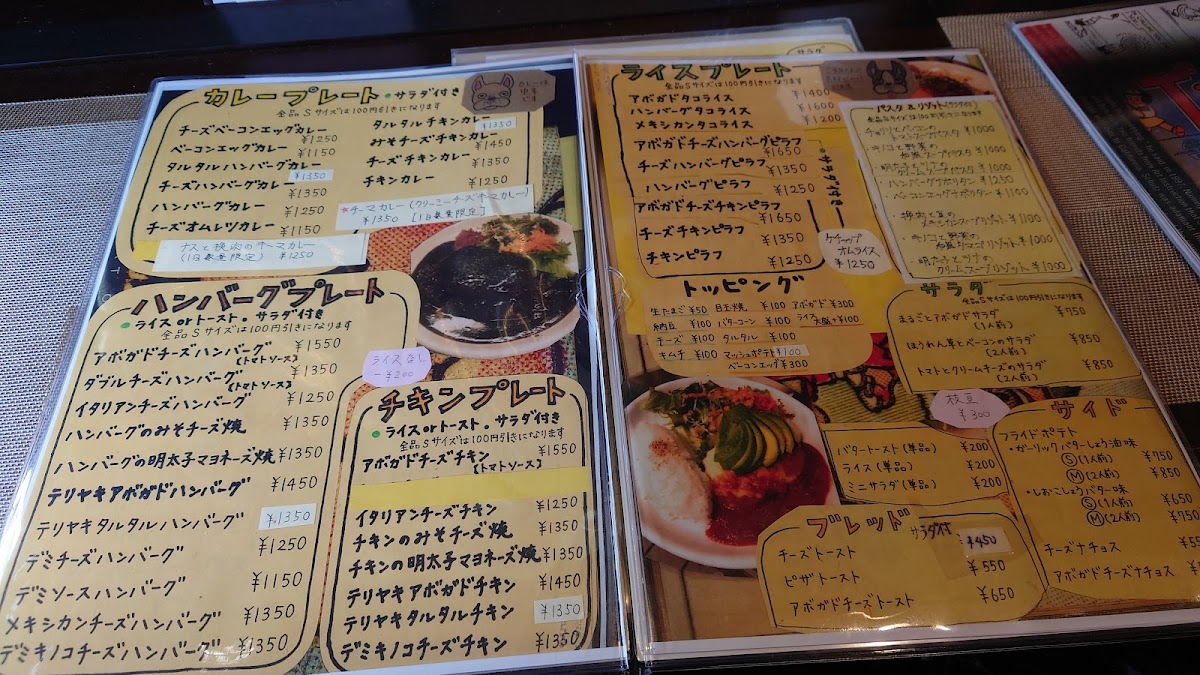 カレープレート • サラダ付き
全品Sサイズは100円引きになります
チーズベーコンエッグカレー ¥1250
ベーコンエッグカレー ¥1150
タルタルハンバーグカレー ¥1350
チーズハンバーグカレー ¥1350
ハンバーグカレー ¥1250
チーズオムレツカレー ¥1250
タルタルチキンカレー ¥1350
みそチーズチキンカレー ¥1450
チーズチキンカレー ¥1350
チキンカレー ¥1250
¥1350 [1日数量限定]
ナスと挽肉のキーマカレー
(1日数量限定) ¥1250
ハンバーグプレート
• ライスorトースト・サラダ付き
全品Sサイズは100円引きになります
アボガドチーズハンバーグ ¥1550
(トマトソース)
ダブルチーズハンバーグ ¥1350
(トマトソース)
イタリアンチーズハンバーグ ¥1250
ハンバーグのみそチーズ焼 ¥1350
ハンバーグの明太子マヨネーズ焼 ¥1350
テリヤキアボガドハンバーグ ¥1450
テリヤキタルタルハンバーグ ¥1350
デミチーズハンバーグ ¥1250
デミソースハンバーグ ¥1150
メキシカンチーズハンバーグ ¥1350
デミキノコチーズハンバーグ ¥1350
ライスなし
-¥200
チキンプレート
• ライスorトースト・サラダ付き
全品Sサイズは100円引きになります
アボガドチーズチキン ¥1550
(トマトソース)
イタリアンチーズチキン ¥1250
チキンのみそチーズ焼 ¥1350
チキンの明太子マヨネーズ焼 ¥1350
テリヤキアボガドチキン ¥1450
テリヤキタルタルチキン ¥1350
デミキノコチーズチキン ¥1350
ライスプレート
全品Sサイズは100円引きになります
アボガドタコライス ¥1400
ハンバーグタコライス ¥1600
メキシカンタコライス ¥1200
アボガドチーズハンバーグピラフ ¥1650
チーズハンバーグピラフ ¥1350
ハンバーグピラフ ¥1250
アボガドチーズチキンピラフ ¥1650
チーズチキンピラフ ¥1350
チキンピラフ ¥1250
• サラダ付き
ケチャップ
オムライス
¥1250
トッピング
生たまご ¥50 目玉焼 ¥100 アボガド ¥300
納豆 ¥100 バターコーン ¥100 ライス大盛 +¥100
チーズ ¥100 タルタル ¥100
キムチ ¥100 マッシュポテト ¥100
ベーコンエッグ ¥300
パスタ&リゾット(サラダ付)
全品Sサイズは100円引きになります
¥1000
¥1000
¥1000
¥1250
¥1100
¥1100
¥1000
明太子とツナの
クリームスープリゾット ¥1000
サラダ
全品Sサイズは100円引きになります
まるごとアボガドサラダ ¥750
(1人前)
ほうれん草とベーコンのサラダ ¥850
(2人前)
トマトとクリームチーズのサラダ ¥850
(2人前)
枝豆
¥300
バタートースト(単品) ¥200
ライス(単品) ¥200
ミニサラダ(単品) ¥200
サイド
フライドポテト
・ガーリックバターしょうゆ味
Ⓢ(1人前) ¥750
Ⓜ(2人前) ¥850
・しおこしょうバター味
Ⓢ(1人前) ¥650
Ⓜ(2人前) ¥750
チーズナチョス
アボガドチーズナチョス
ブレッド サラダ付
チーズトースト ¥450
ピザトースト ¥550
アボガドチーズトースト ¥650
サラダ